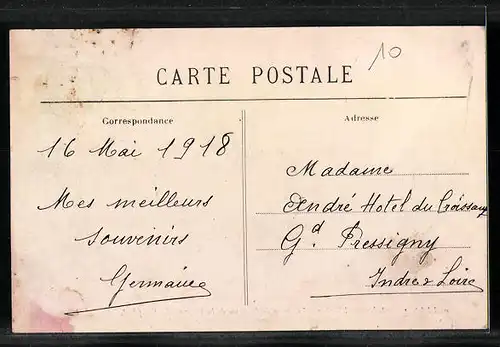 10
CARTE POSTALE
Correspondance
Adresse
16 Mai 1918
Mes meilleurs
souvenirs
Germaine
Madame
André Hotel du Croissant
Gd. Pressigny
Indre & Loire